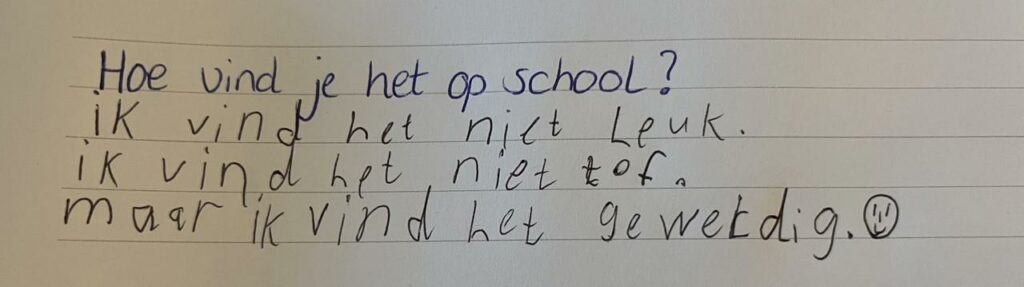 Hoe vind je het op school?
ik vind het niet leuk.
ik vind het niet tof.
maar ik vind het geweldig.